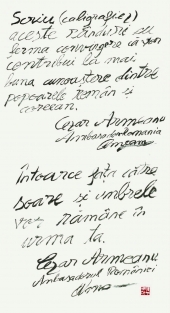 Scriu (caligrafiez)
aceste rânduri cu
ferma convingere că vom
contribui la mai
buna cunoaștere dintre
popoarele român și
coreean.
Cezar Armeanu
Ambasador Romania
Întoarce fața către
soare și umbrele
vor rămâne în
urma ta.
Cezar Armeanu
Ambasadorul României